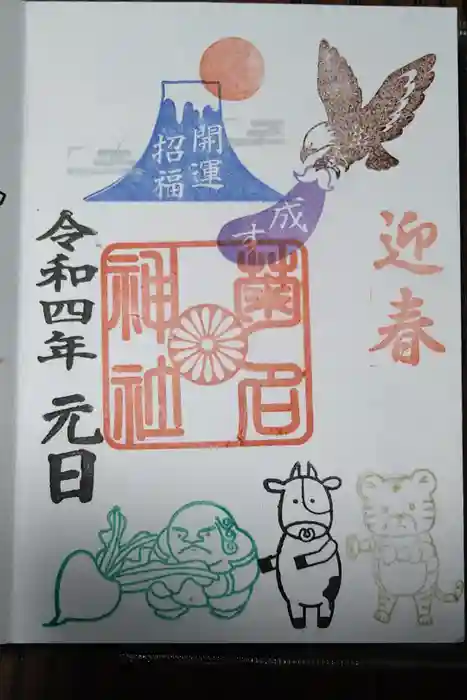 迎春
開運
招福
成す
菊名
神社
令和四年 元日